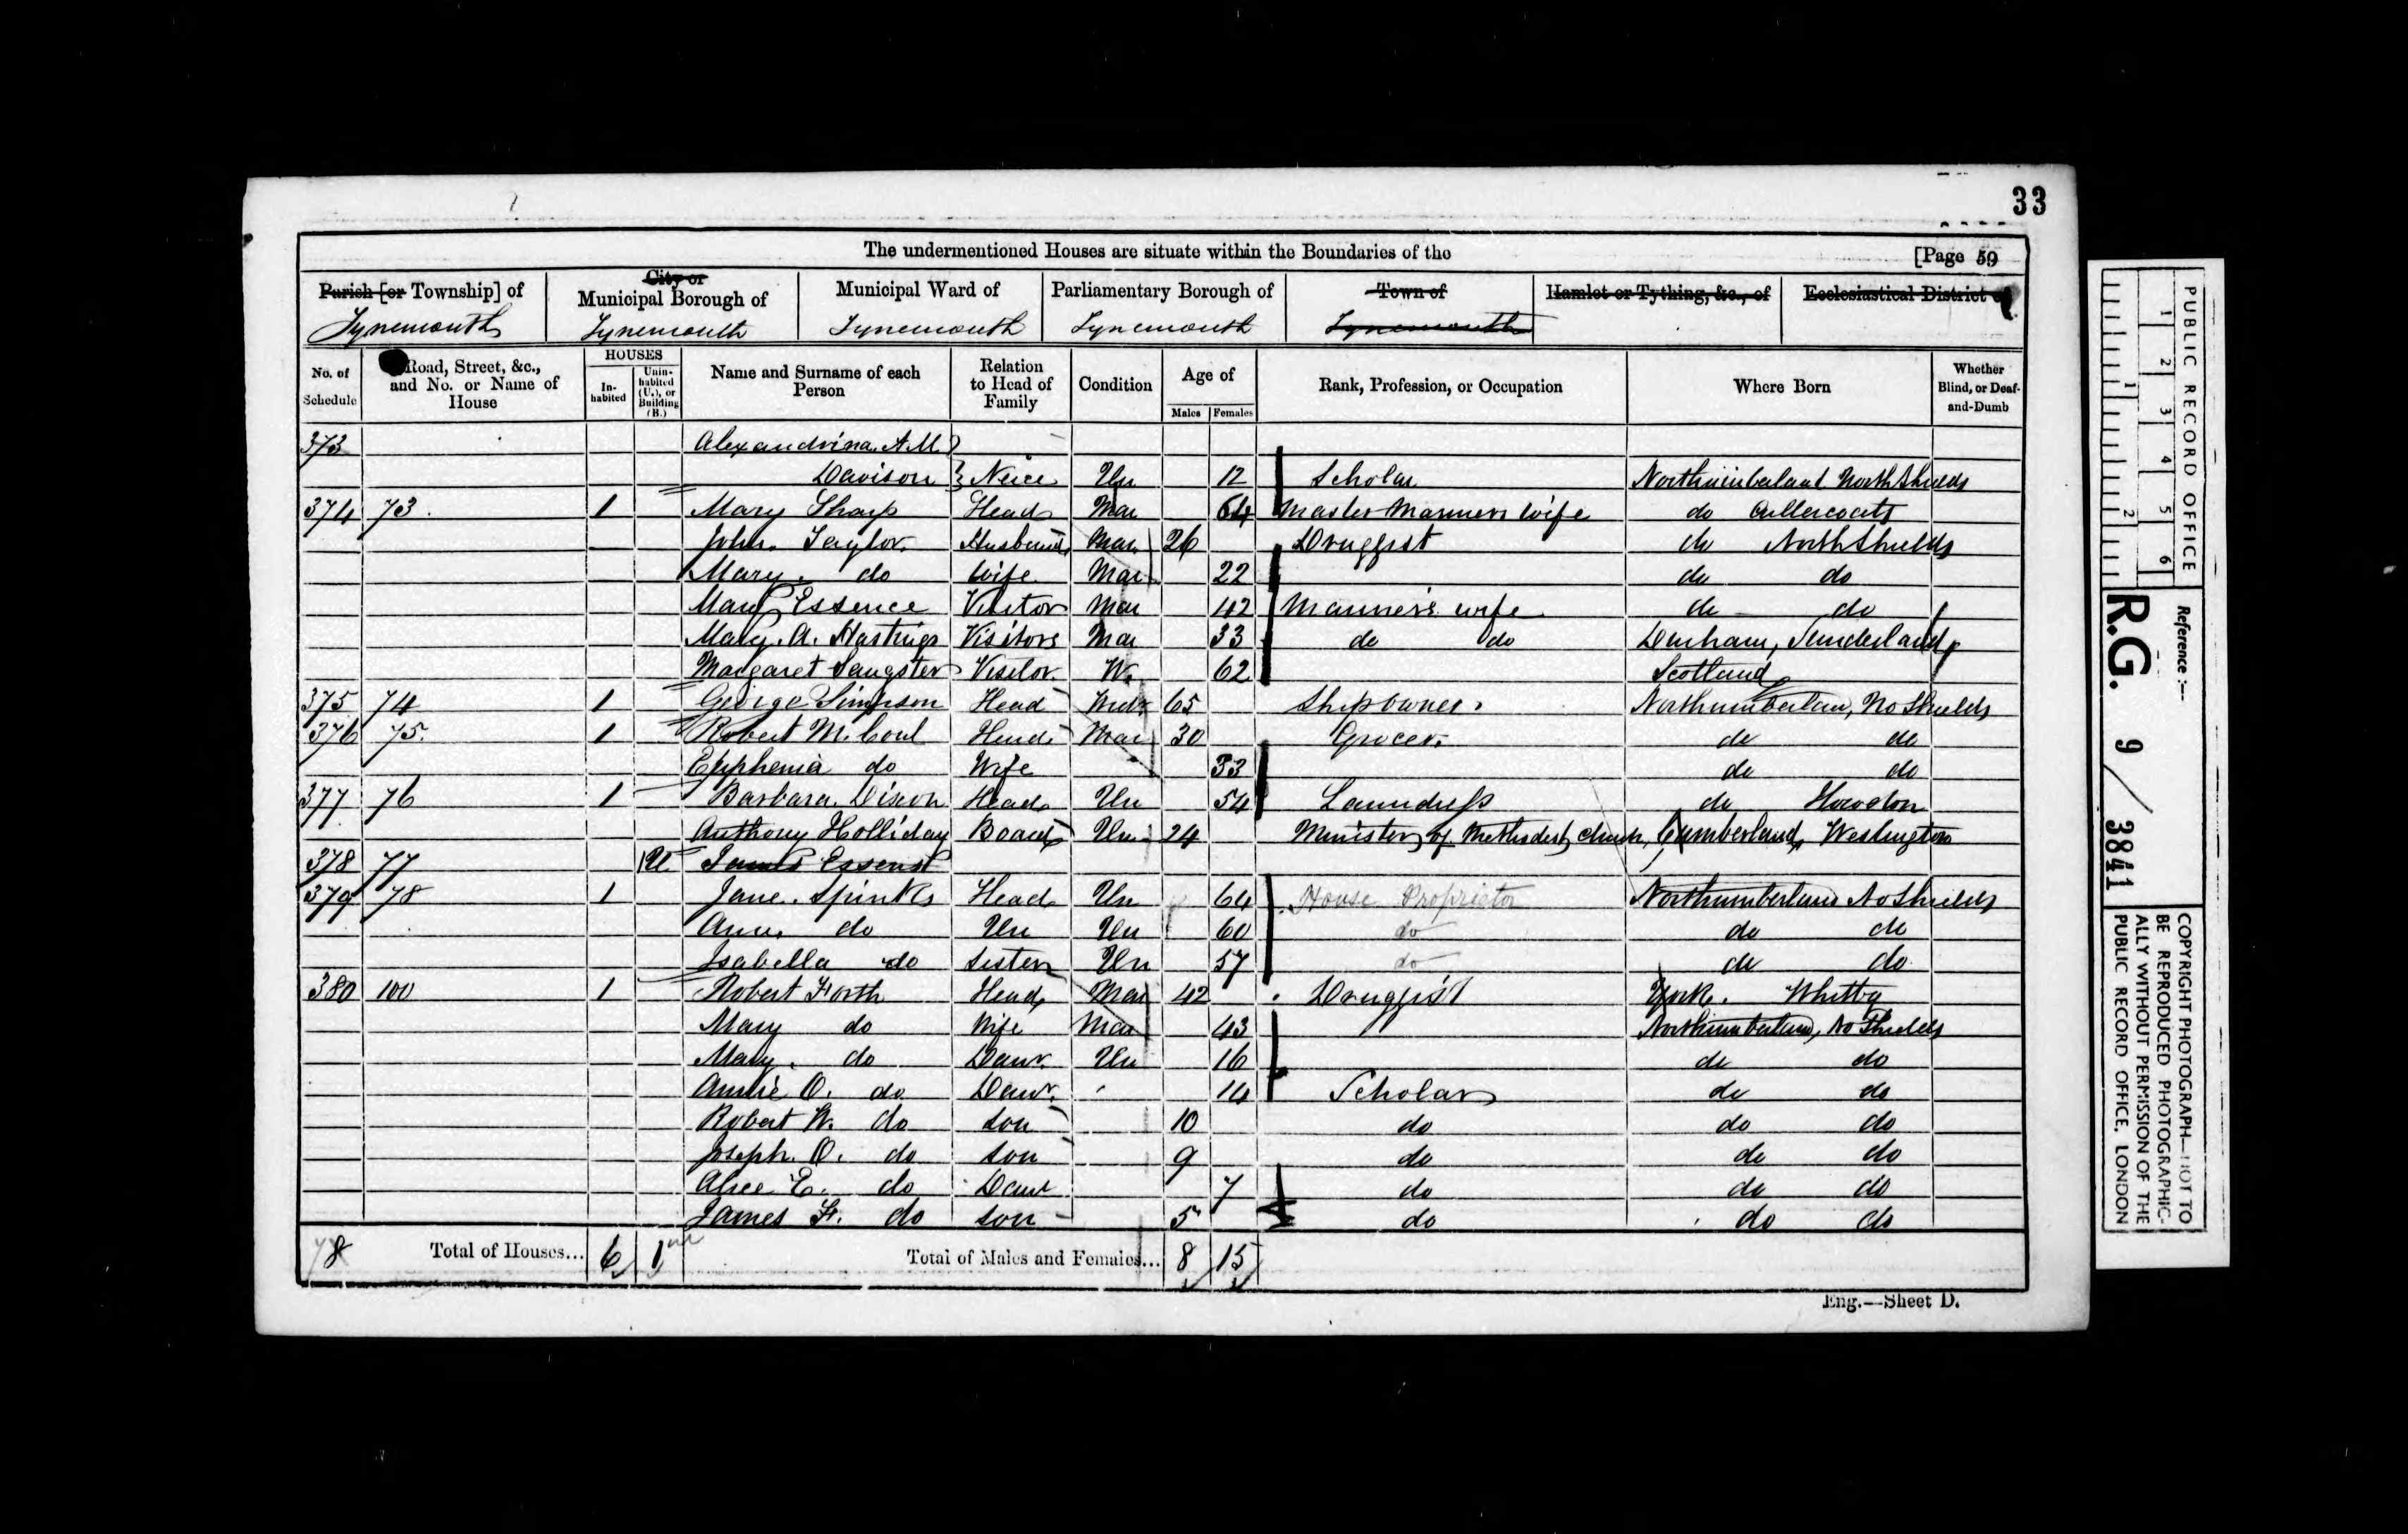 33
The undermentioned Houses are situate within the Boundaries of the [Page 59
Parish [or Township] of City or Municipal Borough of Municipal Ward of Parliamentary Borough of Town of Hamlet or Tything, &c., of Ecclesiastical District
Tynemouth Tynemouth Tynemouth Tynemouth Tynemouth
No. of Schedule Road, Street, &c., and No. or Name of House HOUSES Inhabited Uninhabited (U.), or Building (B.) Name and Surname of each Person Relation to Head of Family Condition Age of Males Females Rank, Profession, or Occupation Where Born Whether Blind, or Deaf-and-Dumb
373 Alexandrina. A. M.
Davison Neice Un 12 Scholar Northumberland North Shields
374 73 1 Mary Sharp Head Mar 64 Master Mariners wife do Cullercoats
John Taylor Husband Mar 26 Druggist do North Shields
Mary do Wife Mar 22 do do
Mary Essence Visitor Mar 42 Mariners wife do do
Mary. A. Hastings Visitors Mar 33 do do Durham, Sunderland
Margaret Sangster Visitor W. 62 Scotland
375 74 1 George Simpson Head 65 Shipowner Northumberlan, No Shields
376 75 1 Robert M. Coul Head Mar 30 Grocer do do
Epphemia do Wife 33 do do
377 76 1 Barbara Dixon Head Un 54 Laundress do Howdon
Anthony Holliday Board Un 24 Minister of Methodist church, Cumberland,
378 77 1U James
379 78 1 Jane Spinks Head Un 64 House Proprietor Northumberland No Shields
Ann do Un Un 60 do do do
Isabella do Sister Un 57 do do do
380 100 1 Robert Forth Head Mar 42 Druggist York. Whitby
Mary do Wife Mar 43 Northumberlan, No Shields
Mary do Daur. Un 16 do do
Annie O. do Daur. 14 Scholar do do
Robert W. do Son 10 do do do
Joseph. O. do Son 9 do do do
Alice E. do Daur 7 do do do
James F. do Son 5 do do do
8 Total of Houses... 6 1 Total of Males and Females... 8 15
Eng.—Sheet D.
PUBLIC RECORD OFFICE
1 2 3 4 5 6
1 2
Reference :—
R.G. 9 / 3841
COPYRIGHT PHOTOGRAPH—NOT TO
BE REPRODUCED PHOTOGRAPHIC-
ALLY WITHOUT PERMISSION OF THE
PUBLIC RECORD OFFICE, LONDON